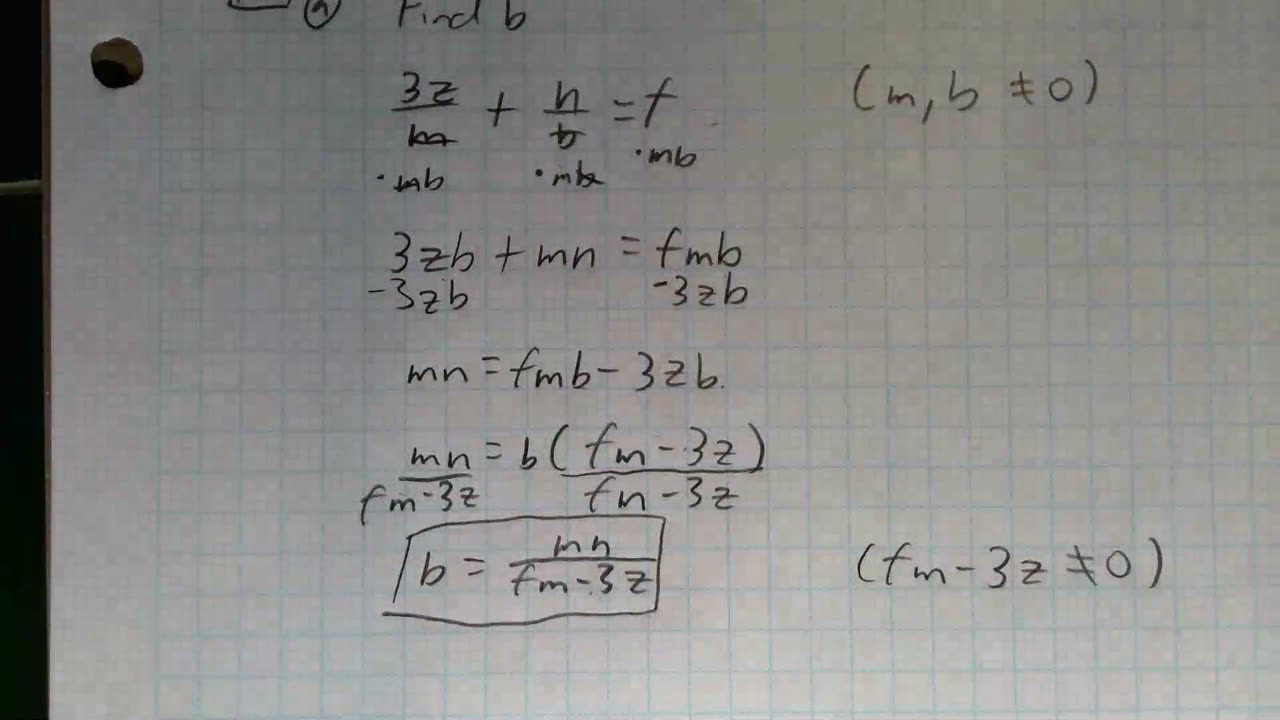 a Find b
3z/m + n/b = f (m, b ≠ 0)
·mb ·mb ·mb
3zb + mn = fmb
-3zb -3zb
mn = fmb - 3zb.
mn = b(fm - 3z)
fm - 3z fn - 3z
b = mn/(fm - 3z) (fm - 3z ≠ 0)